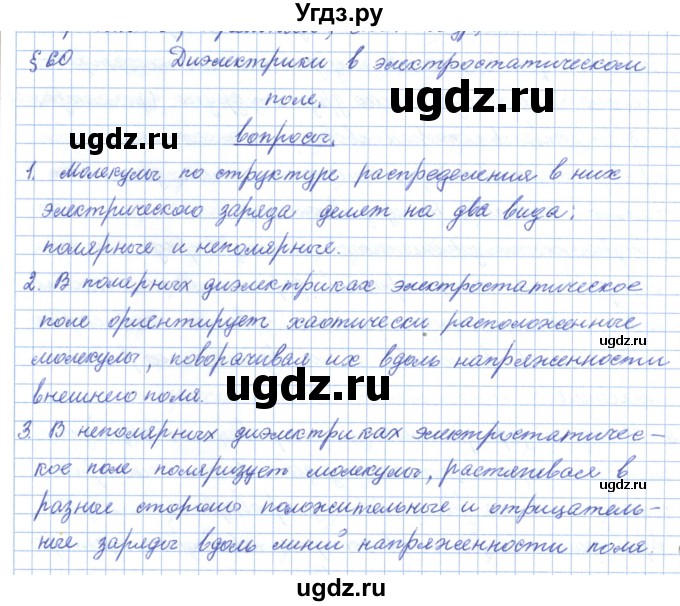 Угдз.ру
§ 60 Диэлектрики в электростатическом
поле.
ugdz.ru
ugdz.ru
вопросы.
ugdz.ru
1. Молекулы по структуре распределения в них
электрического заряда делят на два вида:
полярные и неполярные.
2. В полярных диэлектриках электростатическое
поле ориентирует хаотически расположенные
молекулы, поворачивая их вдоль напряженности
ugdz.ru
внешнего поля.
3. В неполярных диэлектриках электростатичес-
кое поле поляризует молекулы, растягивая в
ugdz.ru
разные стороны положительные и отрицатель-
ные заряды вдоль линий напряженности поля.
ugdz.ru